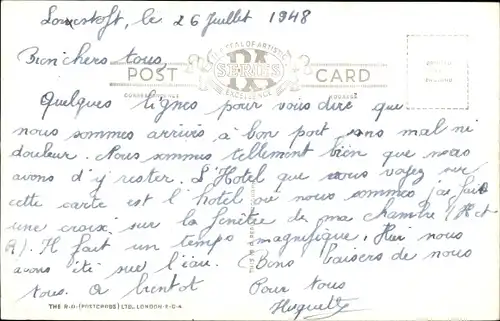 Lowestoft, le 26 Juillet 1948
Bien chers tous,
SEAL OF ARTISTIC
POST RA SERIES CARD
EXCELLENCE
CORRESPONDENCE ADDRESS
PRINTED
IN
ENGLAND
Quelques lignes pour vous dire que
nous sommes arrivés à bon port sans mal ni
douleur. Nous sommes tellement bien que nous
avons d'y rester. L'Hotel que vous voyez sur
cette carte est l'hotel où nous sommes j'ai fait
une croix sur la fenêtre de ma chambre (H et
A). Il fait un temps magnifique. Hier nous
avons été sur l'eau. Bons baisers de nous
tous. A bientôt Pour tous
Huguette
THE R.A. (POSTCARDS) LTD., LONDON. E.C.4.
THIS IS A